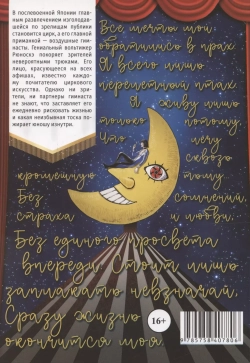 В послевоенной Японии главным развлечением изголодавшейся по зрелищам публики становится цирк, а его главной приманкой — воздушные гимнасты. Гениальный вольтижер Рёноскэ покоряет зрителей невероятными трюками. Его лицо, красующееся на всех афишах, известно каждому почитателю циркового искусства. Однако ни зрители, ни партнеры гимнаста не знают, что заставляет его ежедневно рисковать жизнью и какая неизбывная тоска пожирает юношу изнутри.
Все мечты мои
обратились в прах.
Я всего лишь
перелетный птах.
Я живу лишь
только потому,
Что лечу
сквозь
крошечную тьму.
Без сомнений,
страха и любви.
Без единого просвета
впереди. Стоит лишь
заплакать невзначай,
Сразу жизнь
окончится моя.
16+
9 785758 407806